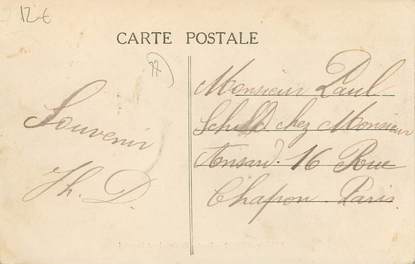 12€
CARTE POSTALE
77
Souvenir
Th. D.
Monsieur Paul
chez Monsieur
16 Rue
Chapon Paris